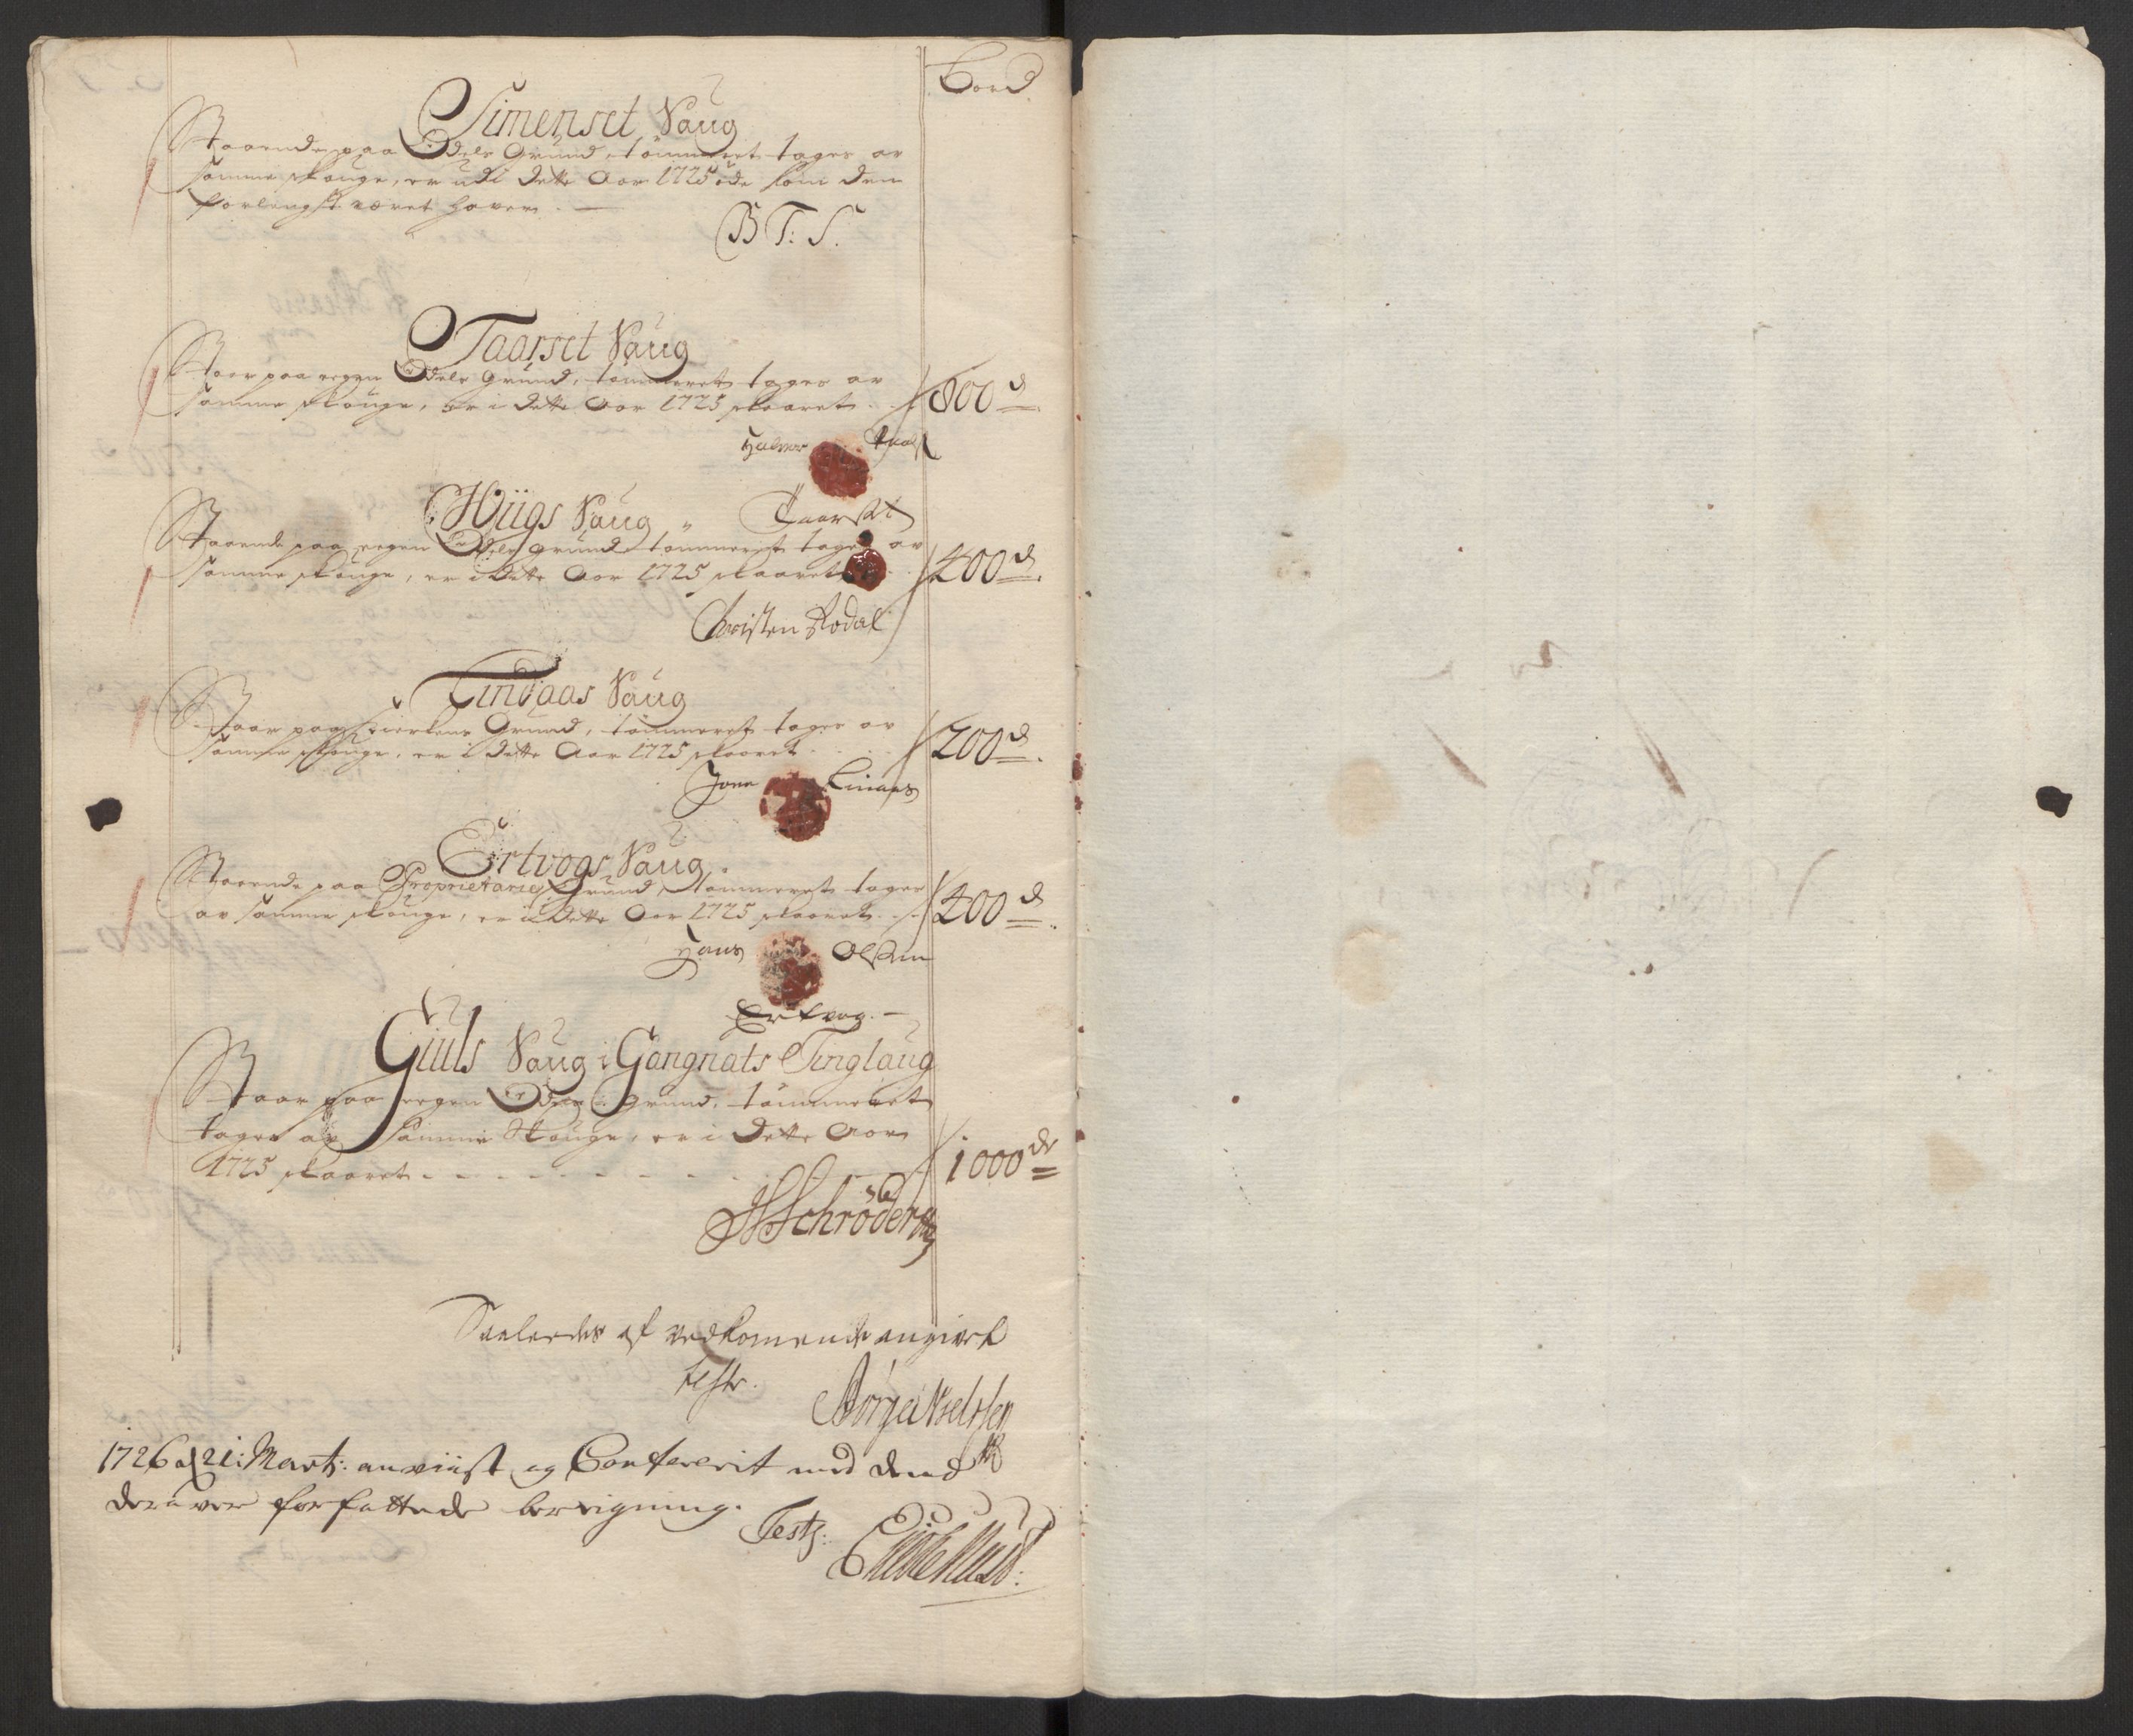 Bord
Simenset Saug
Staaende paa Odels Grund, tømmeret tages av
samme skouge, er udi dette Aar 1725 øde som den
forlengst været haver. —
B T: S.
Taarset Saug
Staar paa eegen Odels Grund, tømmeret tages av
samme skouge, er i dette Aar 1725 skaaret . . 800 d
Halvor
Hüigs Saug
Taarset
Staaende paa eegen Odels grund tømmeret tages av
samme skouge, er i dette Aar 1725 skaaret 400 d.
Christen Rodal
Tindaas Saug
Staar paa Kierkens Grund, tømmeret tages av
samme skouge, er i dette Aar 1725 skaaret . . . 200 d.
Jonn
Ertvogs Saug
Staaende paa Proprietarie Grund, tømmeret tages
av samme skouge, er i dette Aar 1725 skaaret . . 400 d.
Hans Olsen
Ertvog. —
Giuls Saug i Gangnats Tinglaug
Staar paa eegen Odels grund, tømmeret
tages av samme Skouge, er i dette Aar
1725 skaaret - - - - - - - 1000 dr
HSchröder
Saaledes af vedkomende angivet
test.
Børge Nielssen
1726 d 21: Marty: anviist og Confererit med dend
derover forfattede beregning.
Testr: